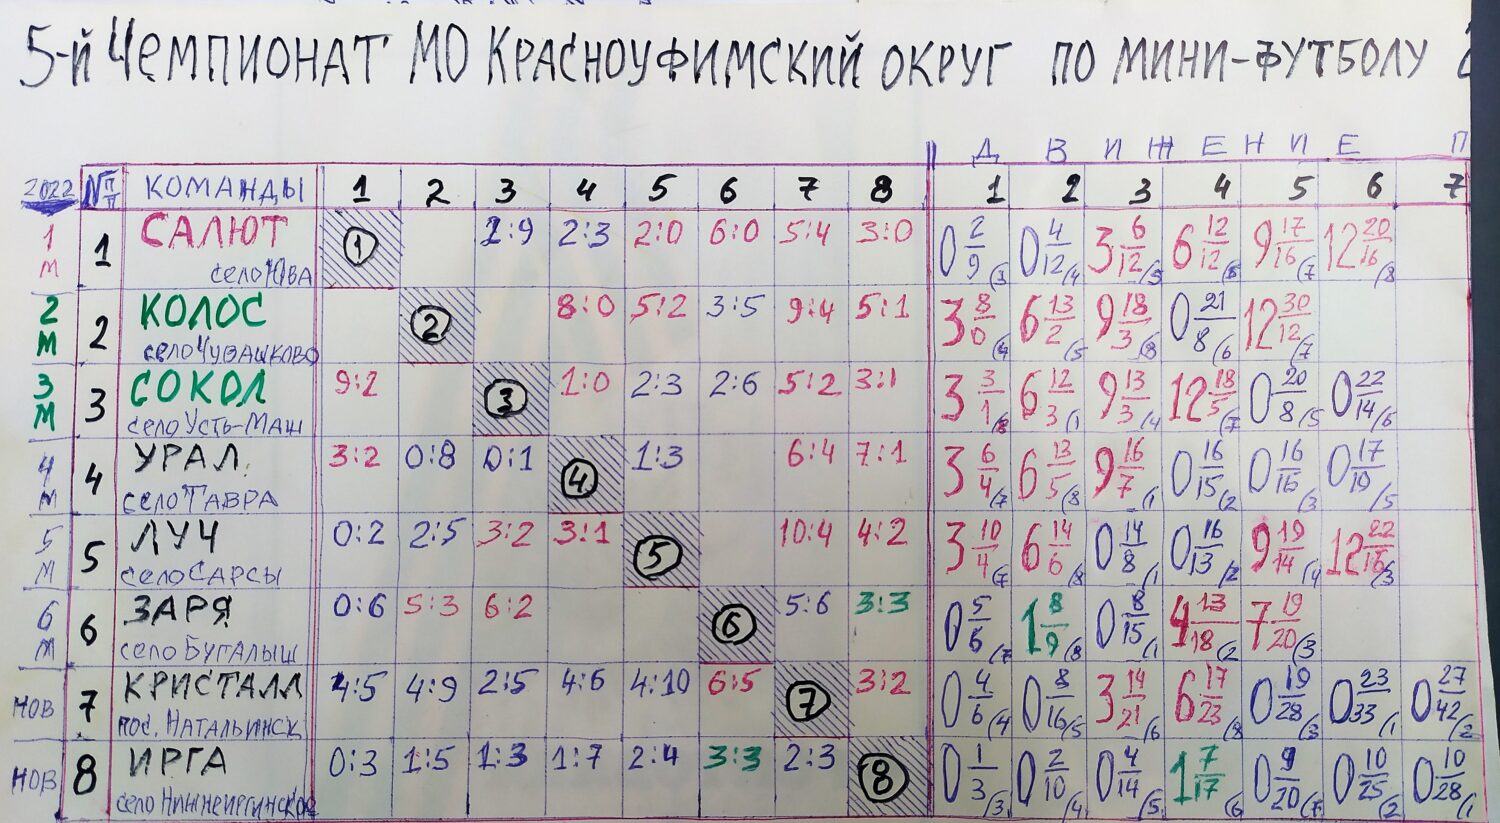 5-й ЧЕМПИОНАТ МО КРАСНОУФИМСКИЙ ОКРУГ ПО МИНИ-ФУТБОЛУ
ДВИЖЕНИЕ П
2022 № П/П КОМАНДЫ 1 2 3 4 5 6 7 8 1 2 3 4 5 6 7
1 М 1 САЛЮТ 1 2:9 2:3 2:0 6:0 5:4 3:0 0 2/9 (3 0 4/12 (4 3 6/12 (5 6 12/12 (6 9 17/16 (7 12 20/16 (8
село ЮВА
2 М 2 КОЛОС 2 8:0 5:2 3:5 9:4 5:1 3 8/0 (4 6 13/2 (5 9 18/3 (8 0 21/8 (6 12 30/12 (7
село ЧУВАШКОВО
3 М 3 СОКОЛ 9:2 3 1:0 2:3 2:6 5:2 3:1 3 3/1 (8 6 12/3 (1 9 13/3 (4 12 18/5 (7 0 20/8 (5 0 22/14 (6
село УСТЬ-МАШ
4 М 4 УРАЛ 3:2 0:8 0:1 4 1:3 6:4 7:1 3 6/4 (7 6 13/5 (8 9 16/7 (1 0 16/15 (2 0 16/16 (3 0 17/19 (5
село ТАВРА
5 М 5 ЛУЧ 0:2 2:5 3:2 3:1 5 10:4 4:2 3 10/4 (7 6 14/6 (8 0 14/8 (1 0 16/13 (2 9 19/14 (4 12 22/16 (3
село САРСЫ
6 М 6 ЗАРЯ 0:6 5:3 6:2 6 5:6 3:3 0 5/6 (7 1 8/9 (8 0 8/15 (1 4 13/18 (2 7 19/20 (3
село БУГАЛЫШ
НОВ 7 КРИСТАЛЛ 4:5 4:9 2:5 4:6 4:10 6:5 7 3:2 0 4/6 (4 0 8/16 (5 3 14/21 (6 6 17/23 (8 0 19/28 (3 0 23/33 (1 0 27/42 (2
пос. НАТАЛЬИНСК
НОВ 8 ИРГА 0:3 1:5 1:3 1:7 2:4 3:3 2:3 8 0 1/3 (3 0 2/10 (4 0 4/14 (5 1 7/17 (6 0 9/20 (7 0 10/25 (2 0 10/28 (1
село НИЖНЕИРГИНСКОЕ